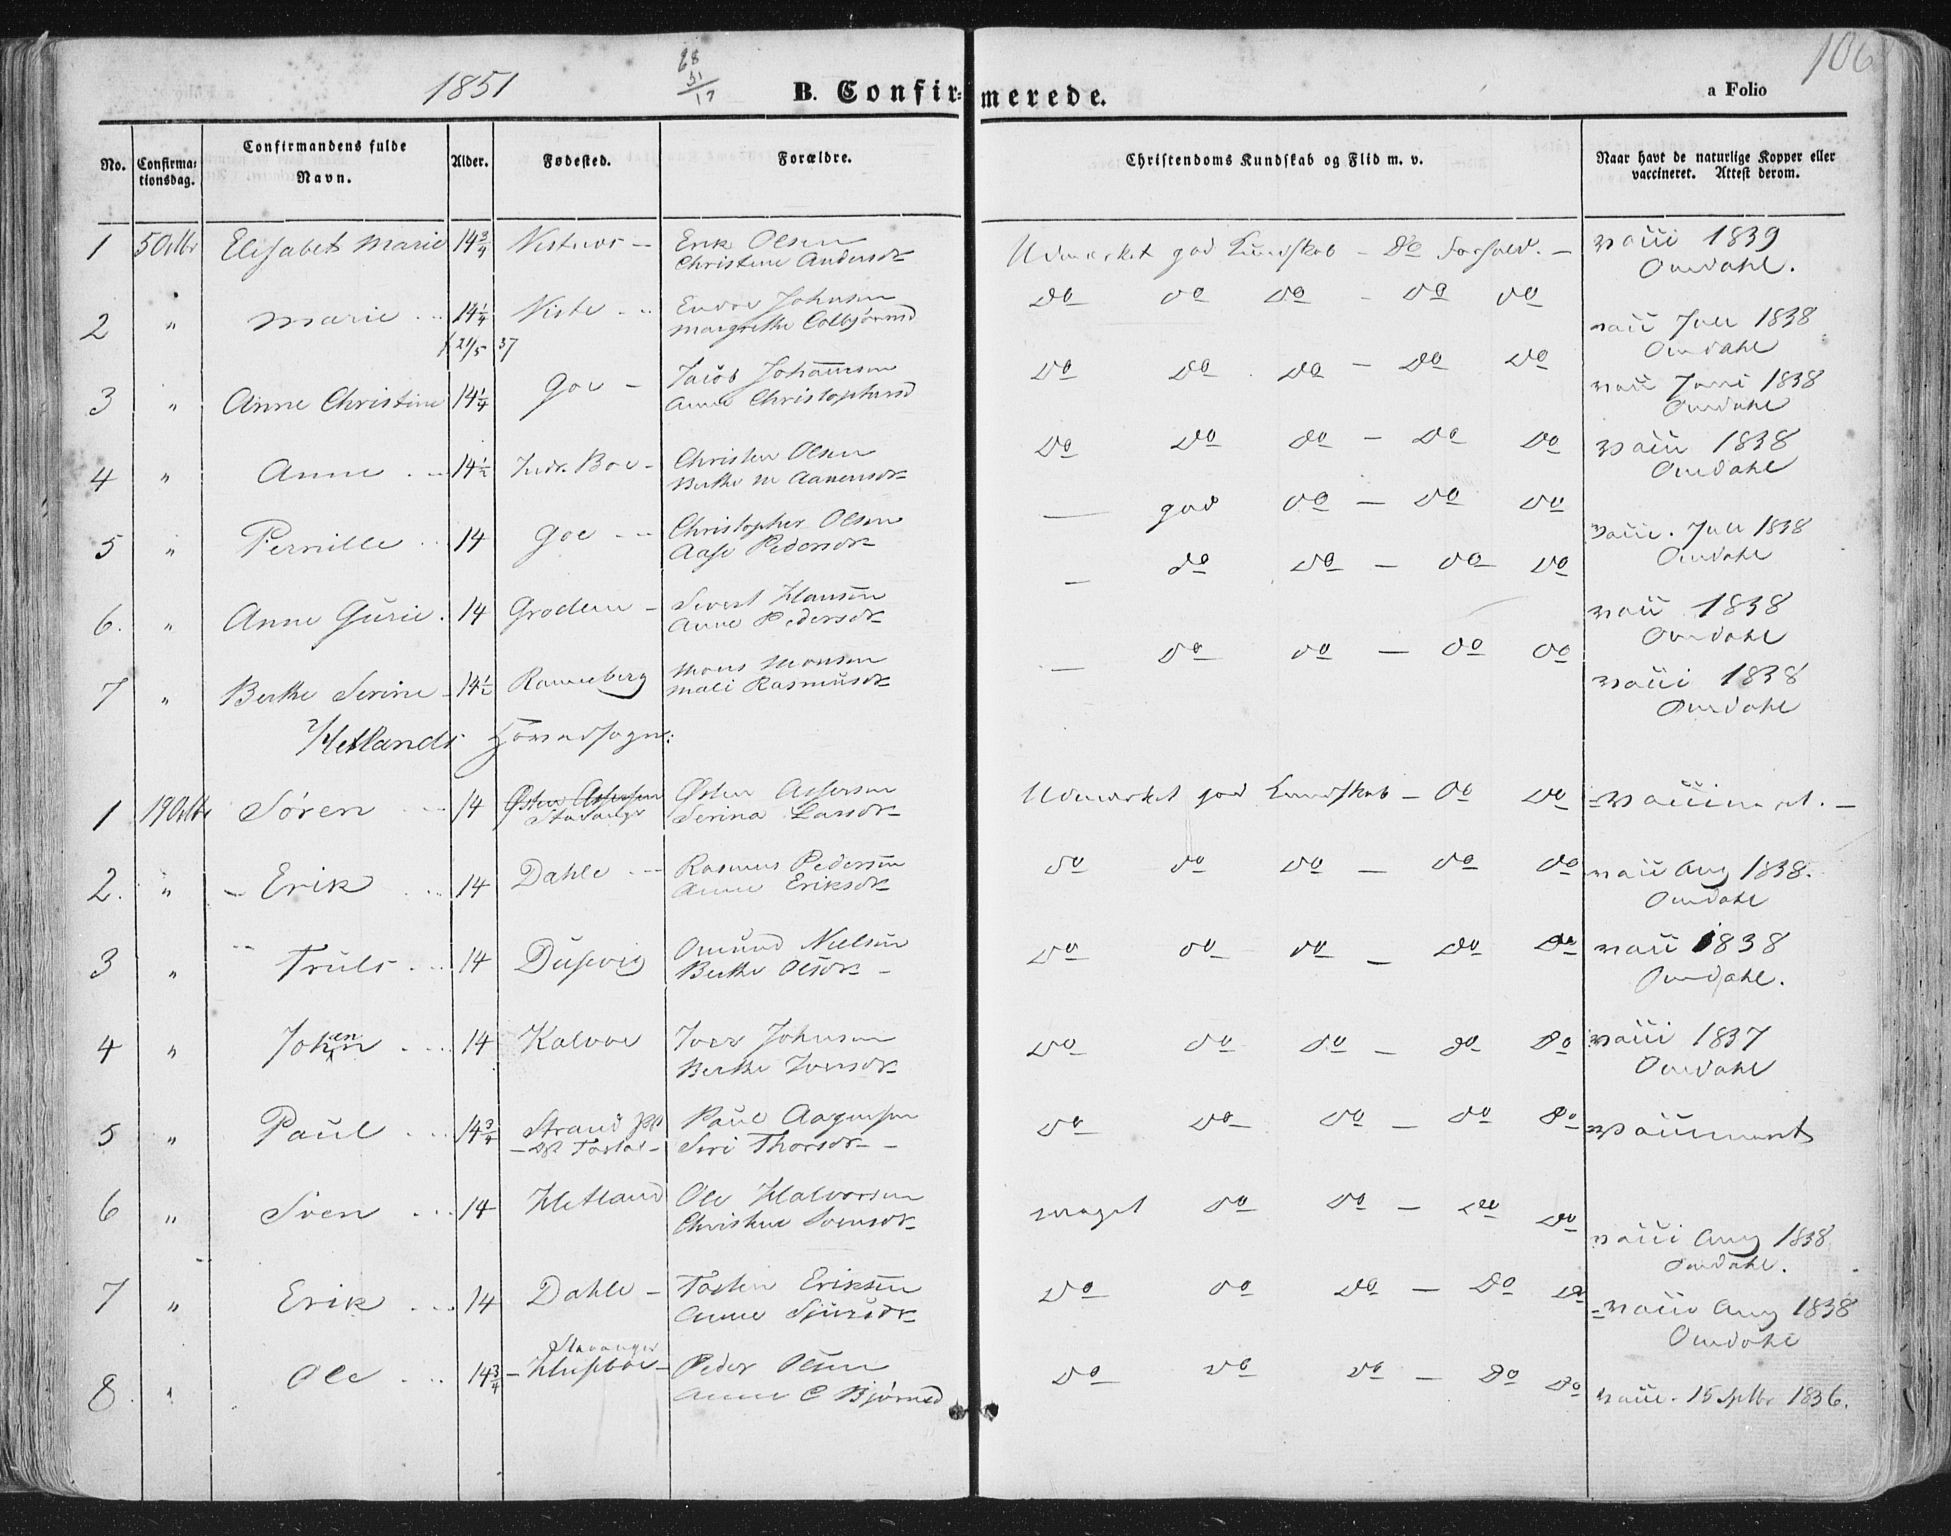 106
1851
68
51
17
B. Confir= merede.
a Folio
No.
Confirma=
tionsdag.
Confirmandens fulde
Navn.
Alder.
Fødested.
Forældre.
Christendoms Kundskab og Flid m. v.
Naar havt de naturlige Kopper eller
vaccineret. Attest derom.
1 5 Octbr Elisabet Marie 14 3/4 Erik Olsen
Christine Andersdr
Udmærket god Kundskab - Do Forhold. - vacci 1839
Omdahl.
2 " Marie 14 1/4 Viste Endre Johnsen
Margrethe Colbjørnsd
Do Do Do - Do Do vacc Juli 1838
Omdahl
f 21/5 37
3 " Anne Christine 14 1/4 Goe - Jacob Johannesen
Anne Christophersd
Do Do Do - Do Do vacc Juni 1838
Omdahl
4 " Anne 14 1/2 Indr. Boe - Christen Olsen
Berthe M Aanensdr
Do Do Do - Do Do vacci 1838
Omdahl
5 " Pernille 14 Goe Christopher Olsen
Aase Pedersdr
- god Do - Do Do vacci. Juli 1838
Omdahl
6. " Anne Gurie. 14 Grodem - Sivert Hansen
Anne Pedersdr
- do Do - Do Do vacc 1838
Omdahl
7 " Berthe Serine 14 1/2 Ranneberg Mons Monsen
Mali Rasmusdr
- Do Do - Do Do vacci 1838
Omdahl
Hetlands Hovedsogn:
1 19 Octbr Søren 14 Østen Assersen
Stavanger
Østen Assersen
Serina Larsdr
Udmærket god Kundskab - Do Do vaccineret. -
2. " - Erik 14 Dahle Rasmus Pedersen
Anne Eriksdr
Do Do Do - Do Do vacci Aug 1838.
Omdahl
3 " Truls 14 Dusevig Omund Nielsen
Berthe Olsdr -
Do Do Do - Do Do vacci 1838
Omdahl.
4 " Johan 14 Kalvøe Iver Johnsen
Berthe Iversdr
Do Do Do - Do Do vacci 1837
Omdahl
5 " Paul 14 3/4 Strand
Paul Aagensen
Siri Thorsdr -
Do Do Do - Do Do vaccineret
6 " Sven 14 Hetland Ole Halvorsen
Christine Svensdr
meget Do Do - Do Do vacci Aug 1838
Omdahl.
7 " Erik 14 Dahle - Tosten Eriksen
Anne Sjursdr
Do Do Do - Do Do vacci Aug 1838
Omdahl
8. " Ole 14 3/4 Stavanger
Peder Olsen
Anne C Bjørnsd
Do Do Do - Do Do vacci. 15 Septbr 1836.